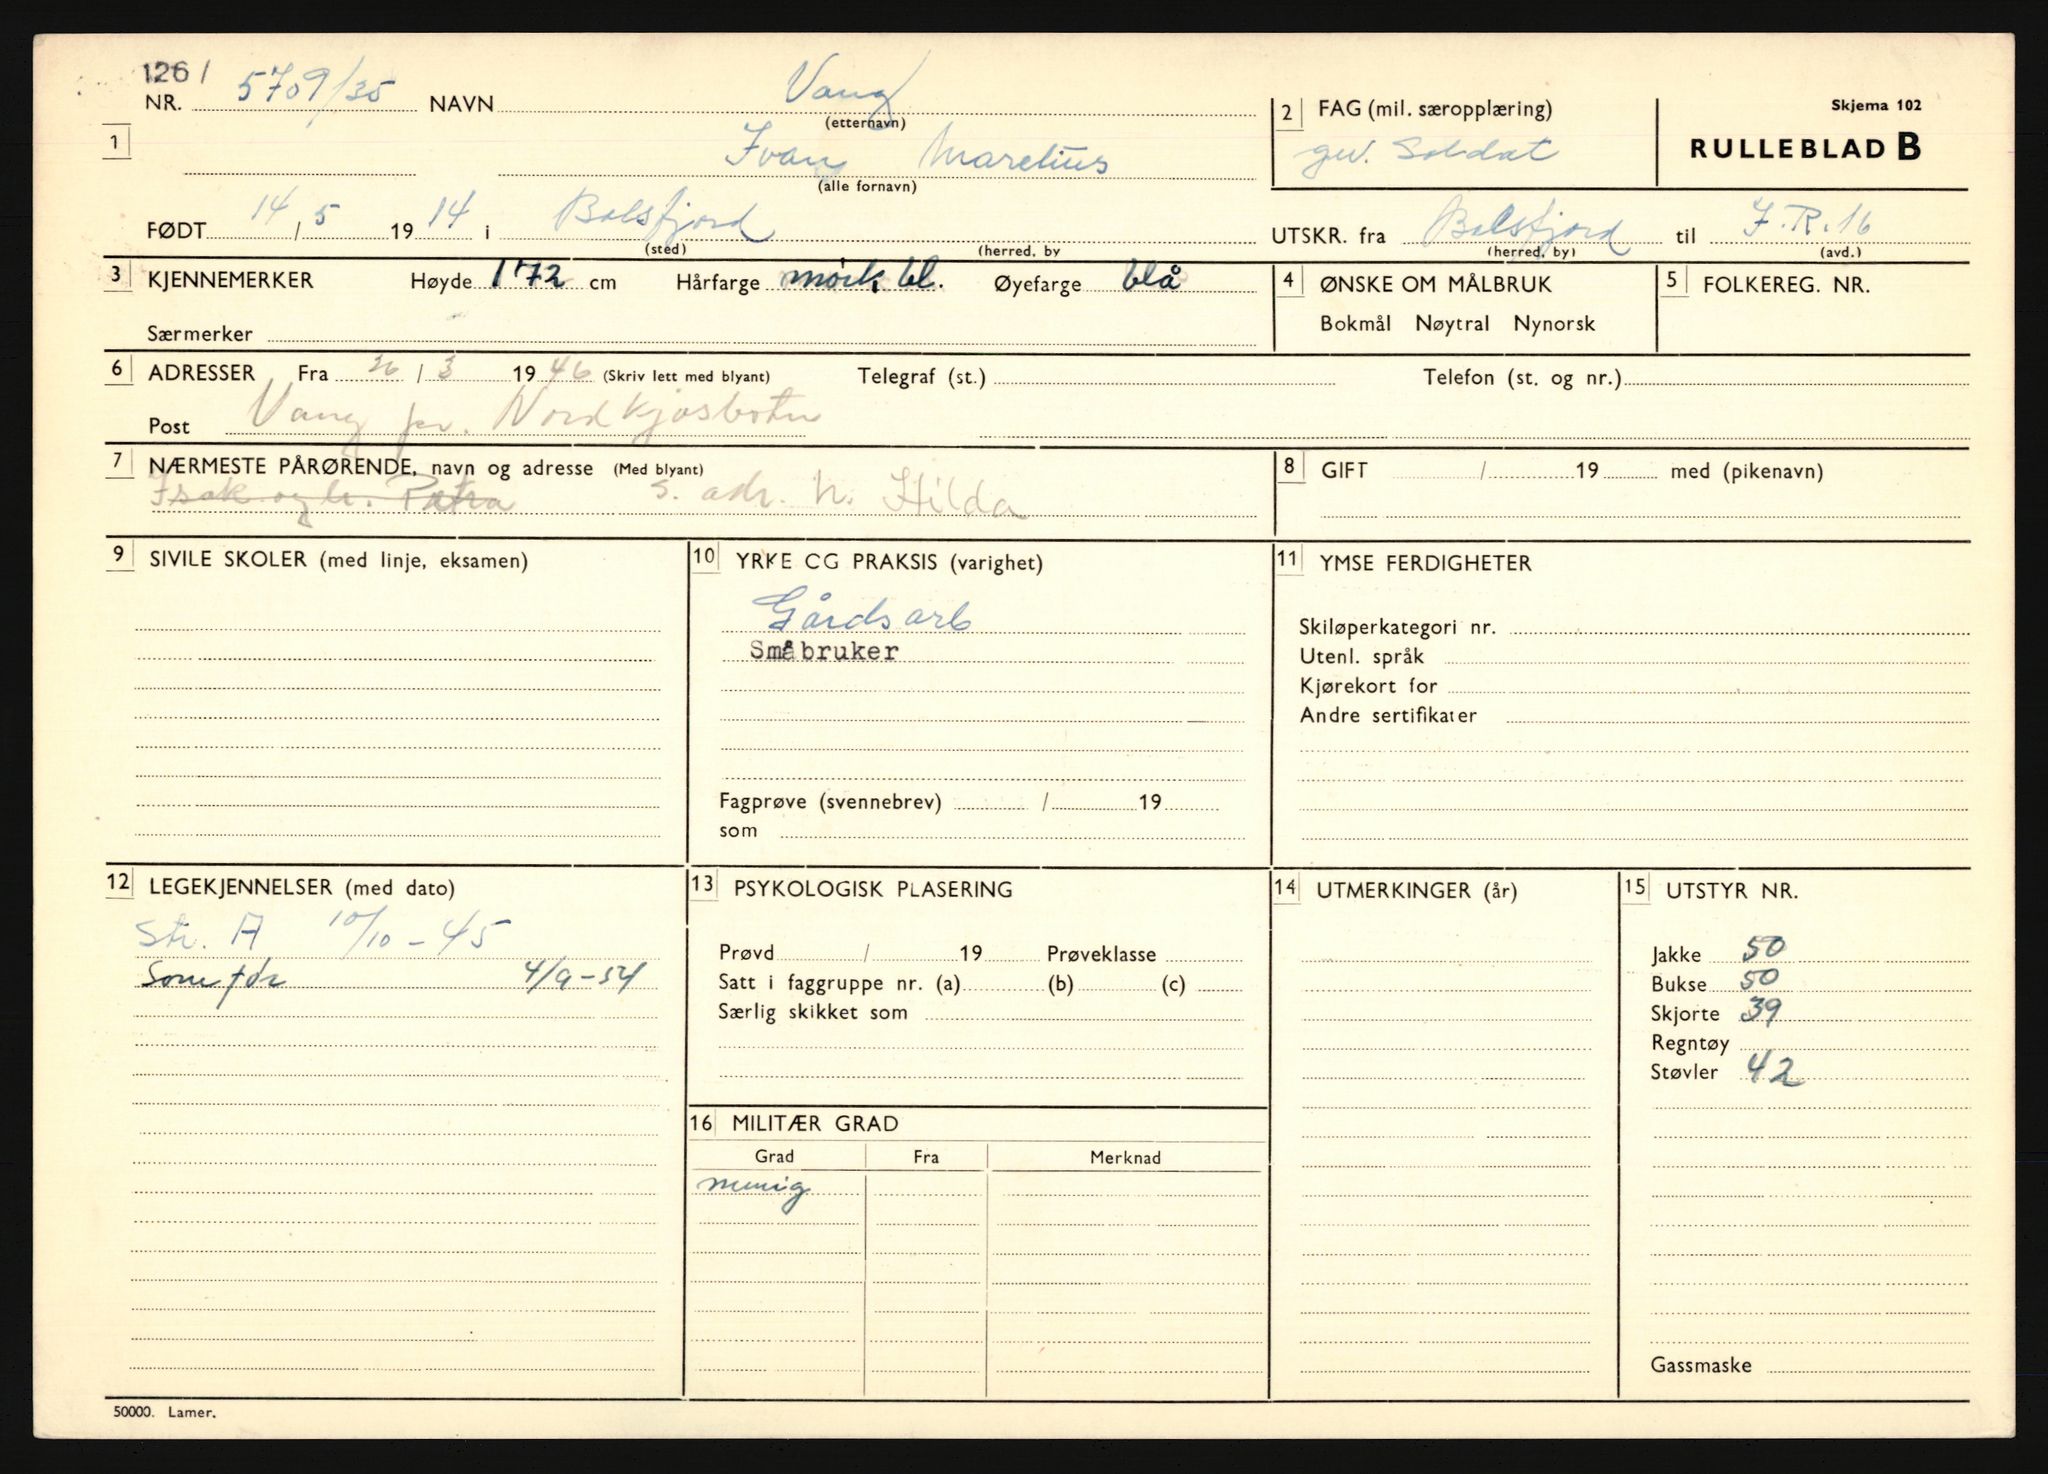 1261
NR. 5709/35 NAVN Vang
(etternavn)
1 Ivan Marelius
(alle fornavn)
2 FAG (mil. særopplæring)
gev. Soldat
Skjema 102
RULLEBLAD B
FØDT 14/5 1914 i Balsfjord
(sted) (herred, by
UTSKR. fra Balsfjord til I.R.16
(herred, by) (avd.)
3 KJENNEMERKER Høyde 172 cm Hårfarge mørk bl. Øyefarge blå
Særmerker
4 ØNSKE OM MÅLBRUK
Bokmål Nøytral Nynorsk
5 FOLKEREG. NR.
6 ADRESSER Fra 26/3 1946 (Skriv lett med blyant) Telegraf (st.) Telefon (st. og nr.)
Post Vang pr. Nordkjosbotn
7 NÆRMESTE PÅRØRENDE, navn og adresse (Med blyant)
Isak og h. Petra s. adr. h. Hilda
8 GIFT / 19 med (pikenavn)
9 SIVILE SKOLER (med linje, eksamen)
10 YRKE CG PRAKSIS (varighet)
Gårdsarb
Småbruker
Fagprøve (svennebrev) / 19
som
11 YMSE FERDIGHETER
Skiløperkategori nr.
Utenl. språk
Kjørekort for
Andre sertifikater
12 LEGEKJENNELSER (med dato)
Str. A 10/10-45
Som før 4/9-54
13 PSYKOLOGISK PLASERING
Prøvd / 19 Prøveklasse
Satt i faggruppe nr. (a) (b) (c)
Særlig skikket som
14 UTMERKINGER (år)
15 UTSTYR NR.
Jakke 50
Bukse 50
Skjorte 39
Regntøy
Støvler 42
Gassmaske
16 MILITÆR GRAD
Grad Fra Merknad
menig
50000. Lamer.